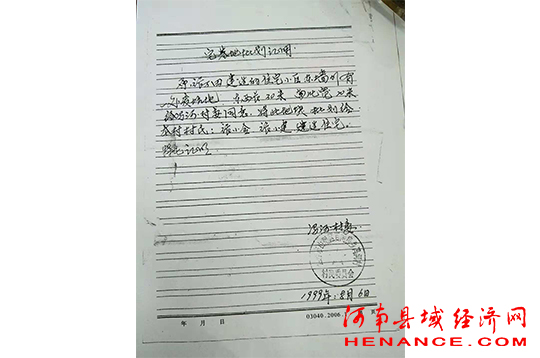 宅基地批划证明
原张小田建造的住宅小区东墙外有
一处荒地 东西长20米 南北宽20米
经 河村委同意,将此地块批划给
本村村民:张小会 张小建 建造住宅。
特此证明
河村委
村民委员会
1999年.8月6日
年 月 日
03040.2006.
河南县域经济网
HENANCE.COM